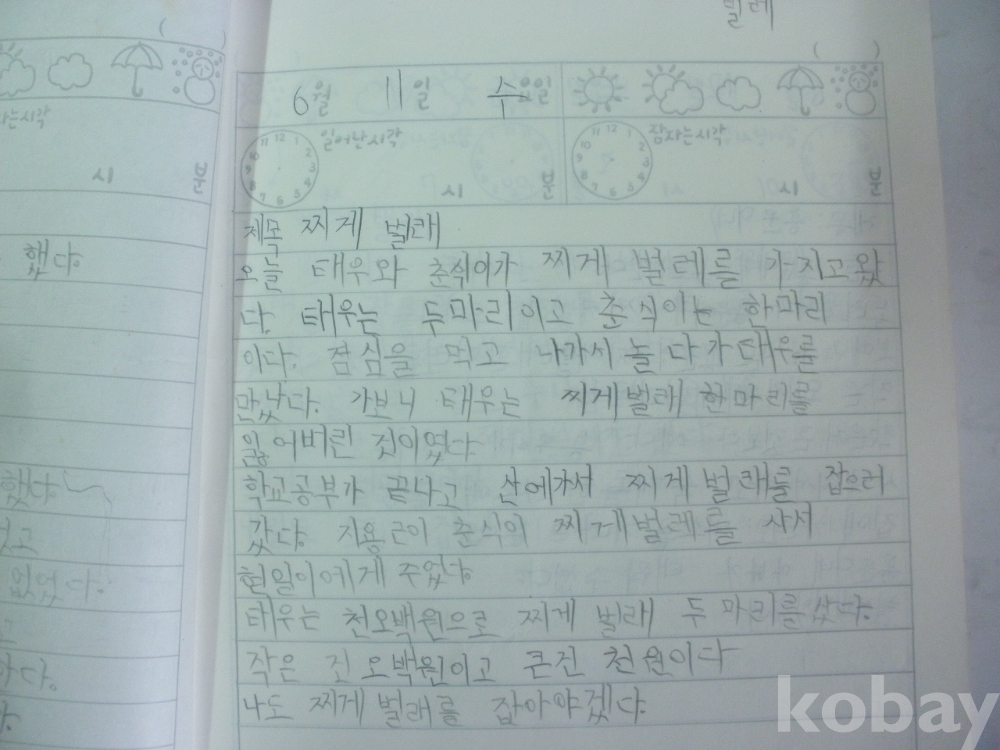 벌레
( )
( )
6월 11일 수요일
자는시각
일어난시각
잠자는시각
시 분
시 분
시 분
제목 찌게 벌래
오늘 태우와 춘식이가 찌게 벌레를 가지고왔
다. 태우는 두마리이고 춘식이는 한마리
이다. 점심을 먹고 나가서 놀다가 태우를
만났다. 가보니 태우는 찌게벌래 한마리를
잃어버린 것이였다
학교공부가 끝나고 산에가서 찌게 벌래를 잡으러
갔다. 지용근이 춘식이 찌게벌레를 사서
현일이에게 주었다.
태우는 천오백원으로 찌게 벌래 두 마리를샀다.
작은 건 오백원이고 큰건 천원이다
나도 찌게 벌래를 잡아야겠다.
했다.
했다
없었다.
kobay